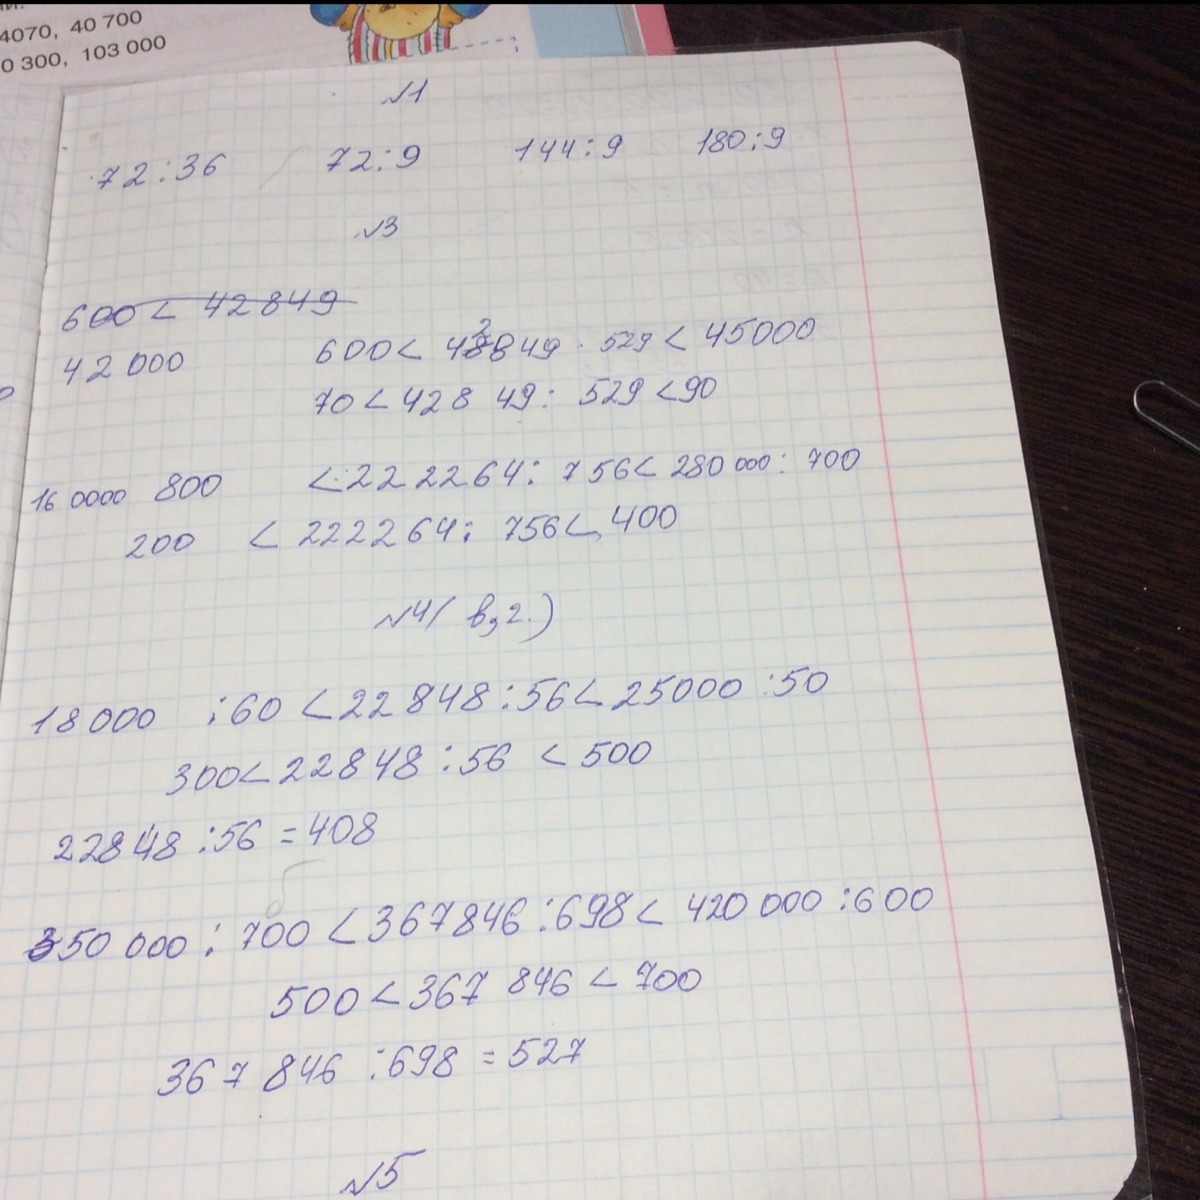 4070, 40 700
0 300, 103 000
№1
72:36 72:9 144:9 180:9
№3
600 < 42849
42 000 600 < 42849 : 529 < 45000
70 < 428 49 : 529 < 90
16 0000 800 < 222264 : 756 < 280 000 : 700
200 < 222264 : 756 < 400
№4 (в,г.)
18 000 : 60 < 22848 : 56 < 25000 : 50
300 < 22848 : 56 < 500
22848 : 56 = 408
350 000 : 700 < 367846 : 698 < 420 000 : 600
500 < 367 846 < 700
367 846 : 698 = 527
№5